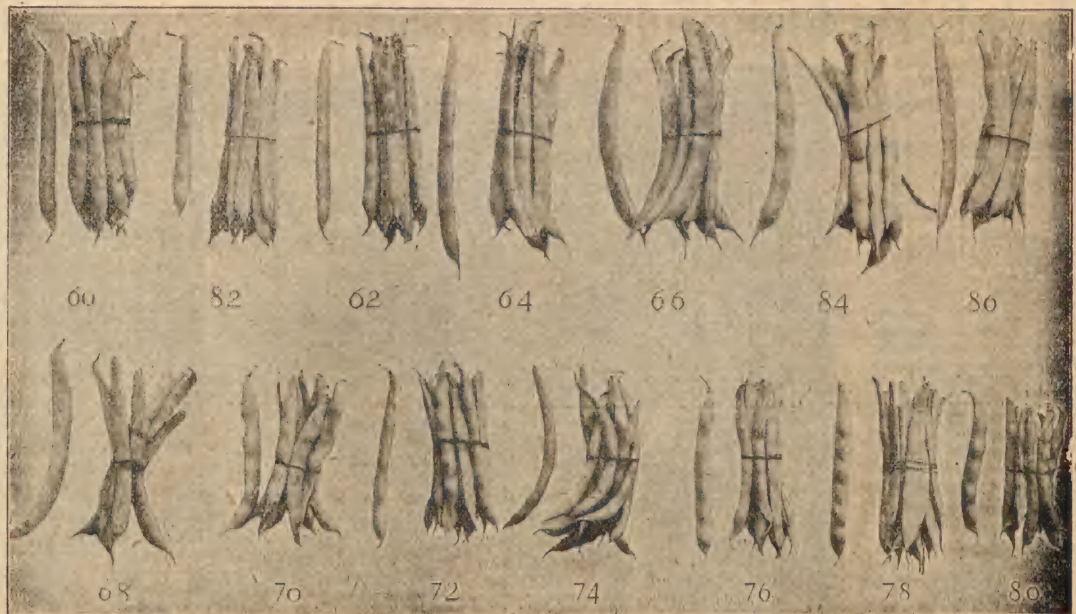 60 82 62 64 66 84 86
68 70 72 74 76 78 80